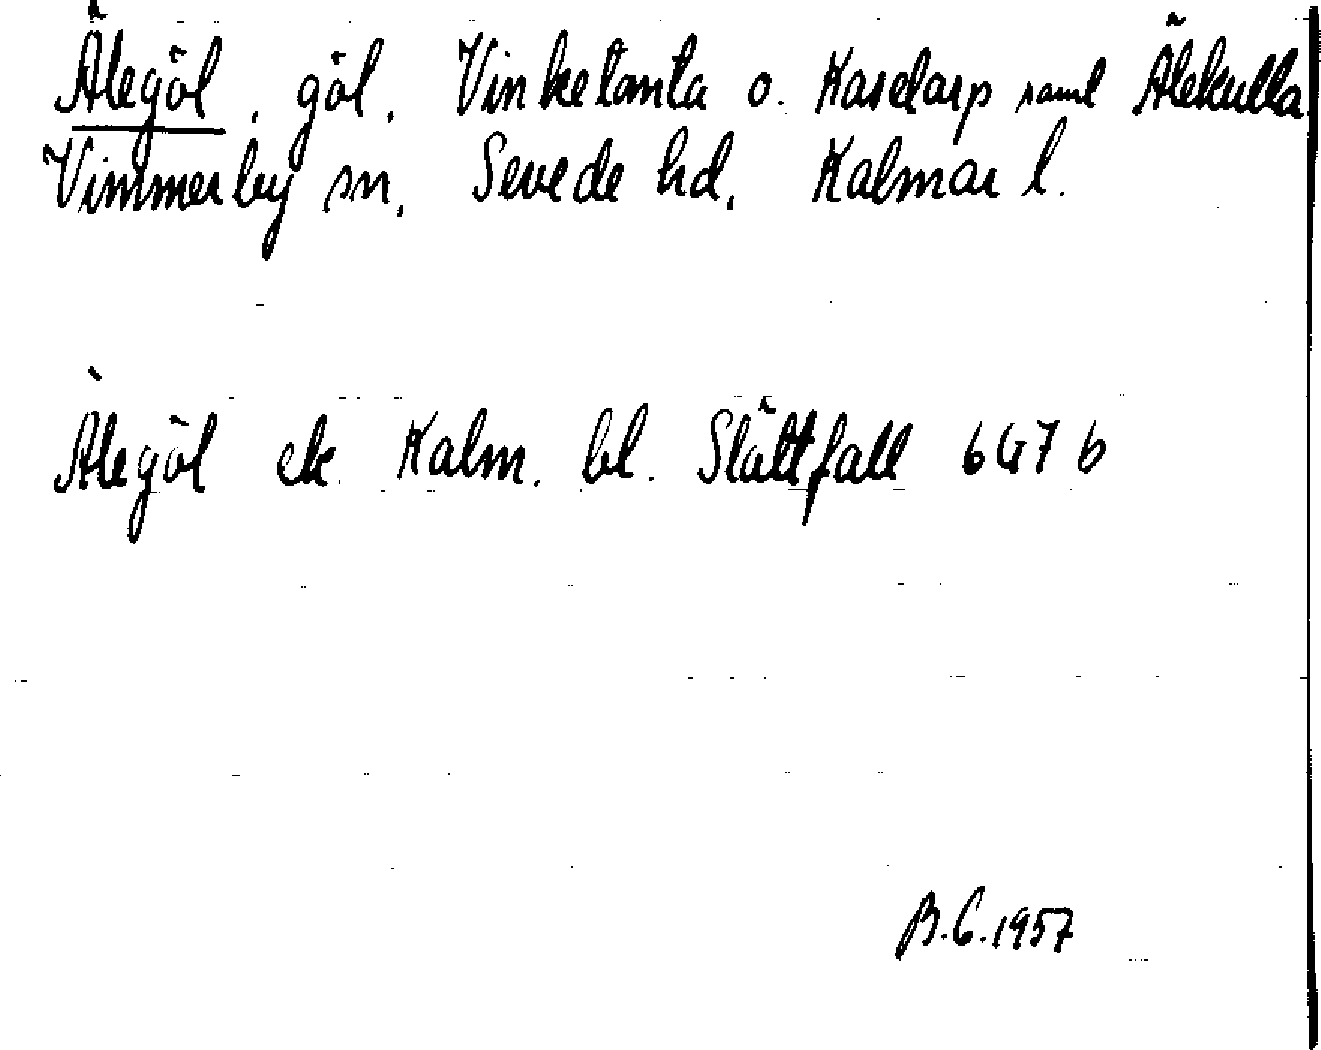 Älegöl, göl, Vinketomta o. Kaselarp samt Älekulla
Vimmerby sn, Sevede hd, Kalmar l.
Älegöl ek Kalm. bl. Slättfall 6G7b
B.G. 1957